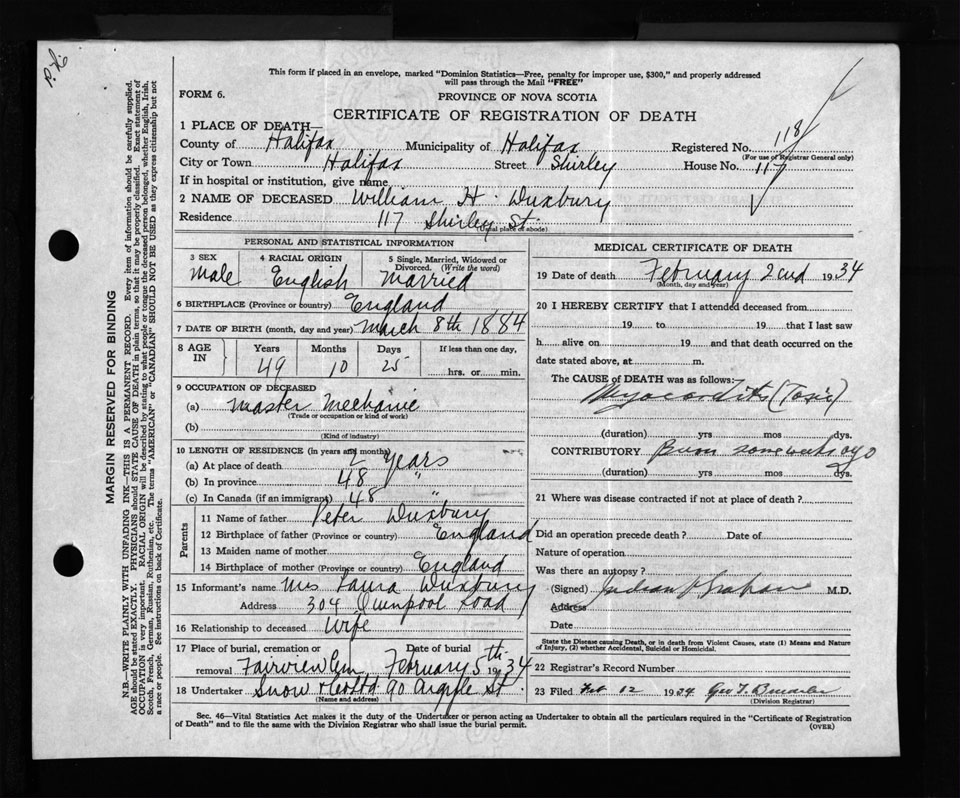 This form if placed in an envelope, marked "Dominion Statistics—Free, penalty for improper use, $300," and properly addressed
will pass through the Mail "FREE"
FORM 6.
PROVINCE OF NOVA SCOTIA
CERTIFICATE OF REGISTRATION OF DEATH
1 PLACE OF DEATH—
County of Halifax Municipality of Halifax Registered No. 118
(For use of Registrar General only)
City or Town Halifax Street Shirley House No. 117
If in hospital or institution, give name
2 NAME OF DECEASED William H. Duxbury
Residence 117 Shirley St.
(Usual place of abode)
PERSONAL AND STATISTICAL INFORMATION
3 SEX 4 RACIAL ORIGIN 5 Single, Married, Widowed or
Divorced. (Write the word)
Male English Married
6 BIRTHPLACE (Province or country) England
7 DATE OF BIRTH (month, day and year) March 8th 1884
8 AGE IN Years Months Days If less than one day,
49 10 25 hrs. or min.
9 OCCUPATION OF DECEASED
(a) Master Mechanic
(Trade or occupation or kind of work)
(b)
(Kind of industry)
10 LENGTH OF RESIDENCE (in years and months)
(a) At place of death 2 years
(b) In province 48 "
(c) In Canada (if an immigrant) 48 "
Parents
11 Name of father Peter Duxbury
12 Birthplace of father (Province or country) England
13 Maiden name of mother
14 Birthplace of mother (Province or country) England
15 Informant's name Mrs Laura Duxbury
Address 304 Quinpool Road
16 Relationship to deceased Wife
17 Place of burial, cremation or Date of burial
removal Fairview Cem February 5th 1934
18 Undertaker Snow & Co Ltd 90 Argyle St.
(Name and address)
MEDICAL CERTIFICATE OF DEATH
19 Date of death February 2nd 1934
(Month, day and year)
20 I HEREBY CERTIFY that I attended deceased from
19 to 19 that I last saw
h alive on 19 and that death occurred on the
date stated above, at m.
The CAUSE of DEATH was as follows:
Myocarditis (Toxic)
(duration) yrs mos dys.
CONTRIBUTORY Burn some weeks ago
(duration) yrs mos dys.
21 Where was disease contracted if not at place of death?
Did an operation precede death? Date of
Nature of operation
Was there an autopsy?
(Signed) Graham M.D.
Address
Date
State the Disease causing Death, or in death from Violent Causes, state (1) Means and Nature
of Injury, (2) whether Accidental, Suicidal or Homicidal.
22 Registrar's Record Number
23 Filed Feb 12 1934 Geo T.
(Division Registrar)
Sec. 46—Vital Statistics Act makes it the duty of the Undertaker or person acting as Undertaker to obtain all the particulars required in the "Certificate of Registration
of Death" and to file the same with the Division Registrar who shall issue the burial permit.
(OVER)
MARGIN RESERVED FOR BINDING
N.B.—WRITE PLAINLY WITH UNFADING INK—THIS IS A PERMANENT RECORD. Every item of information should be carefully supplied.
AGE should be stated EXACTLY. PHYSICIANS should STATE CAUSE OF DEATH in plain terms, so that it may be properly classified. Exact statement of
OCCUPATION is very important. RACIAL ORIGIN will be described by stating to what people or tongue the deceased person belonged, whether English, Irish,
Scotch, French, German, Russian, Ruthenian, etc. The terms "AMERICAN" or "CANADIAN" SHOULD NOT BE USED as they express citizenship but not
a race or people. See instructions on back of Certificate.